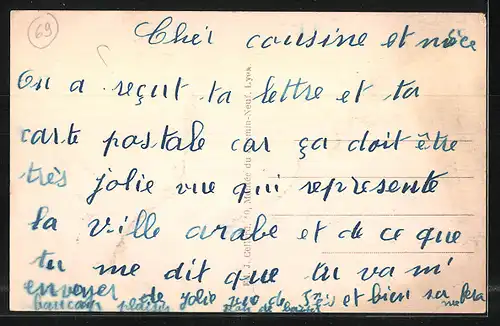 69
Cher cousine et nièce
On a reçut ta lettre et ta
carte postale car ça doit être
très jolie vue qui represente
la ville arabe et de ce que
tu me dit que tu va m'
envoyer de jolie vue de et bien sa me fera
beaucoup plaisir